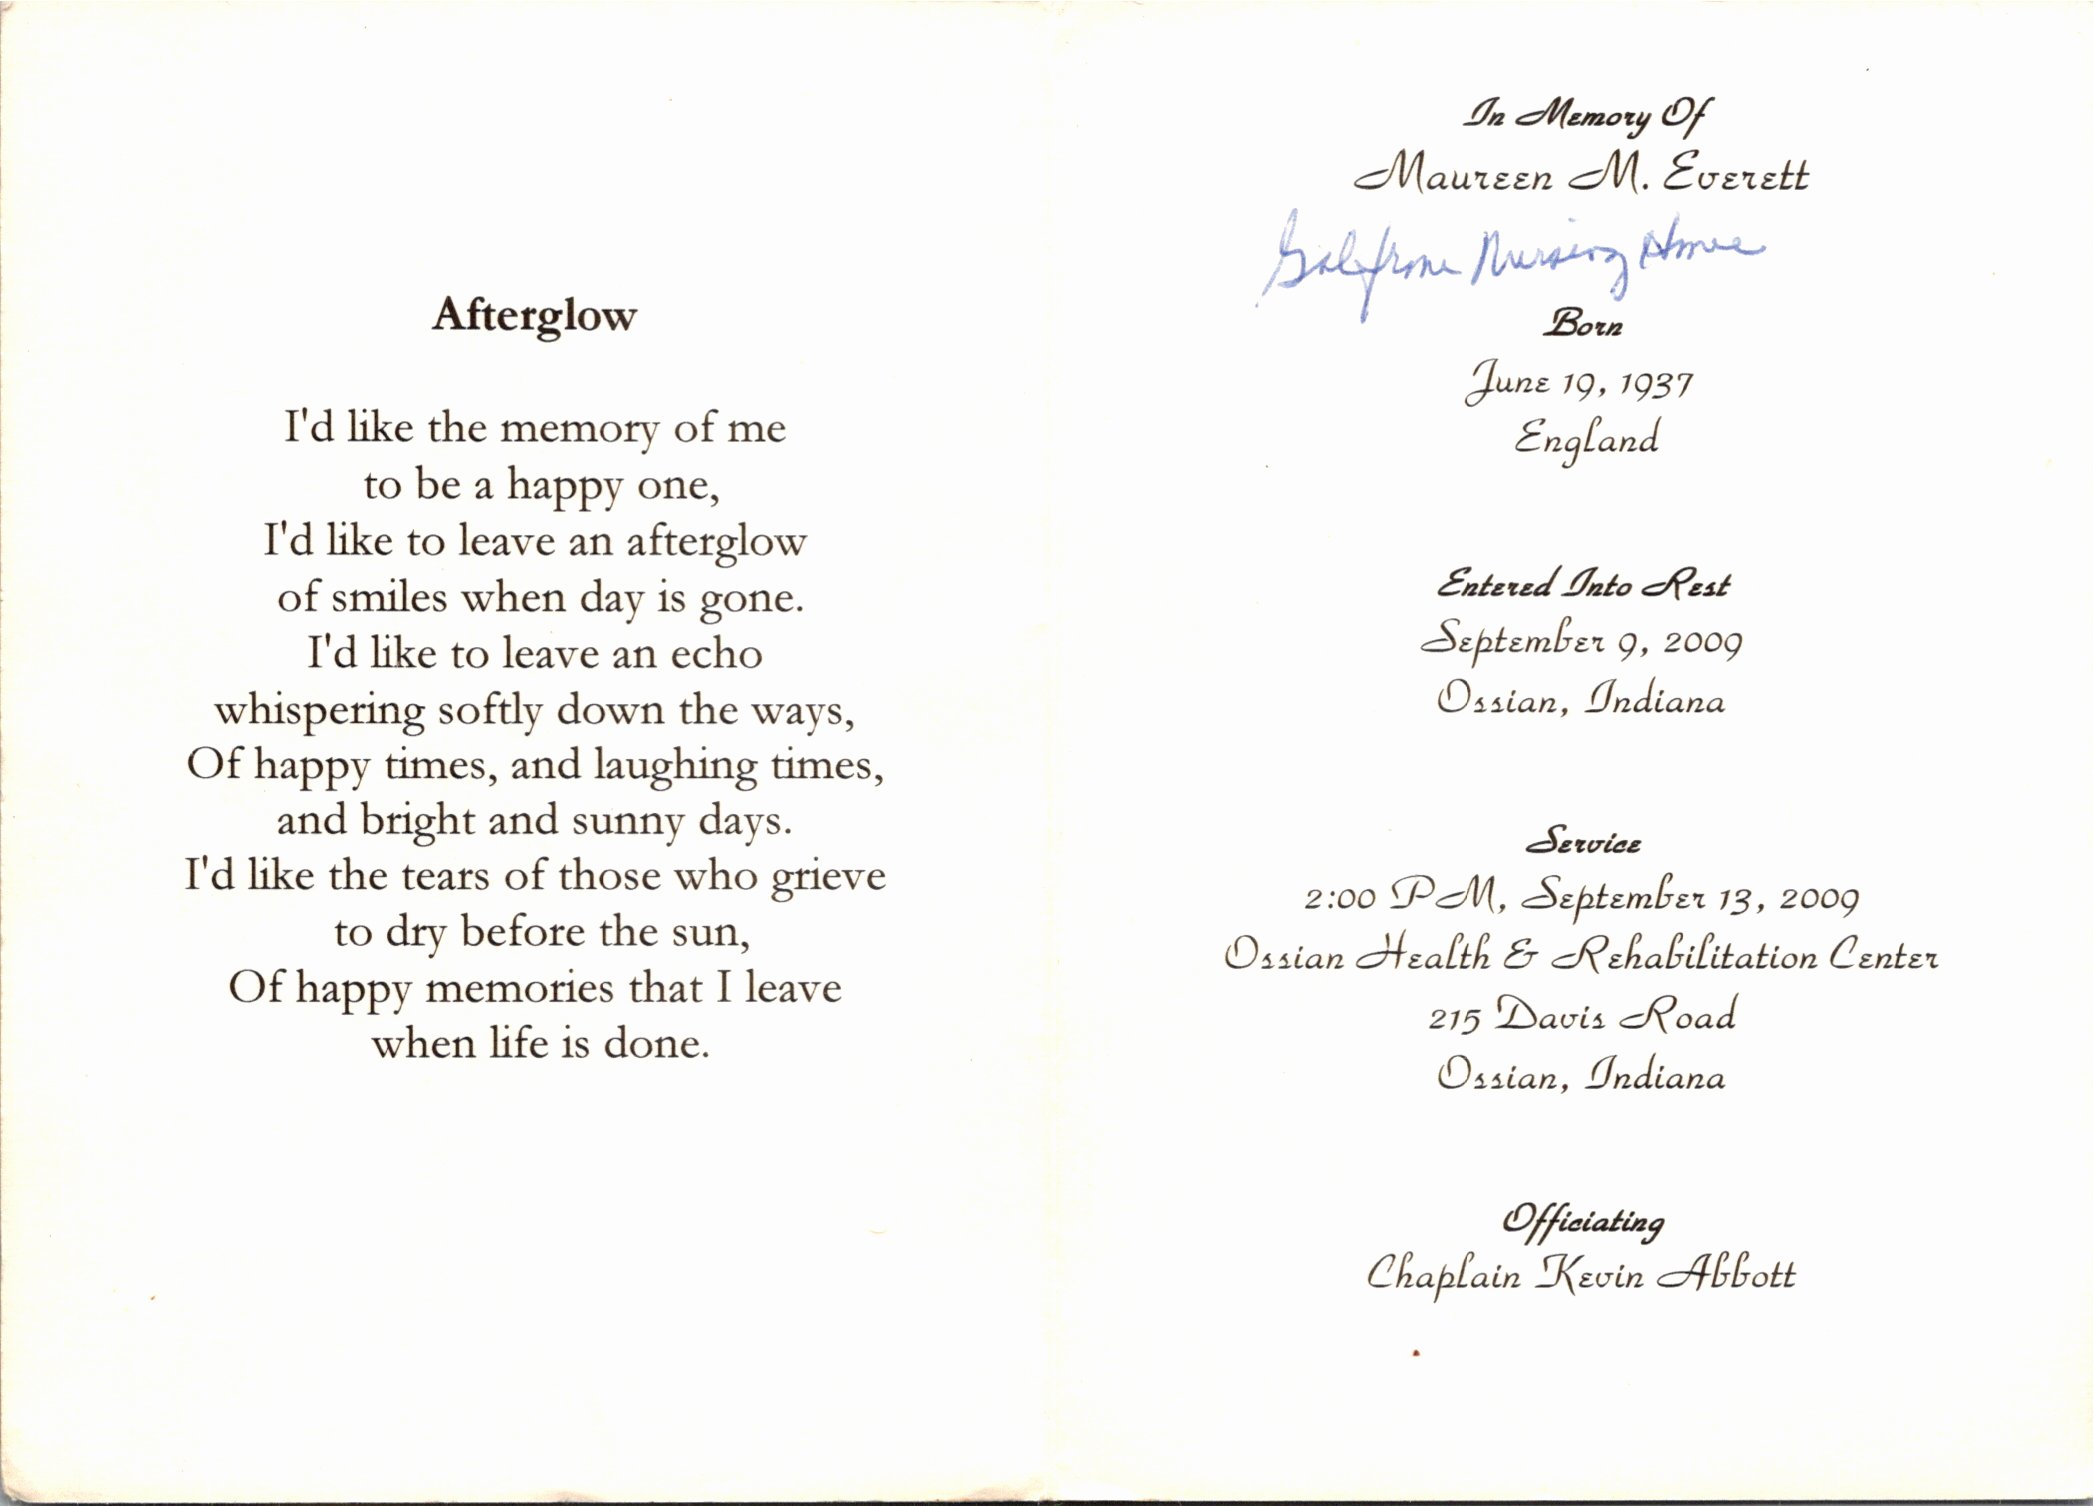 Afterglow
I'd like the memory of me
to be a happy one,
I'd like to leave an afterglow
of smiles when day is gone.
I'd like to leave an echo
whispering softly down the ways,
Of happy times, and laughing times,
and bright and sunny days.
I'd like the tears of those who grieve
to dry before the sun,
Of happy memories that I leave
when life is done.
In Memory Of
Maureen M. Everett
Nursing Home
Born
June 19, 1937
England
Entered Into Rest
September 9, 2009
Ossian, Indiana
Service
2:00 PM, September 13, 2009
Ossian Health & Rehabilitation Center
215 Davis Road
Ossian, Indiana
Officiating
Chaplain Kevin Abbott